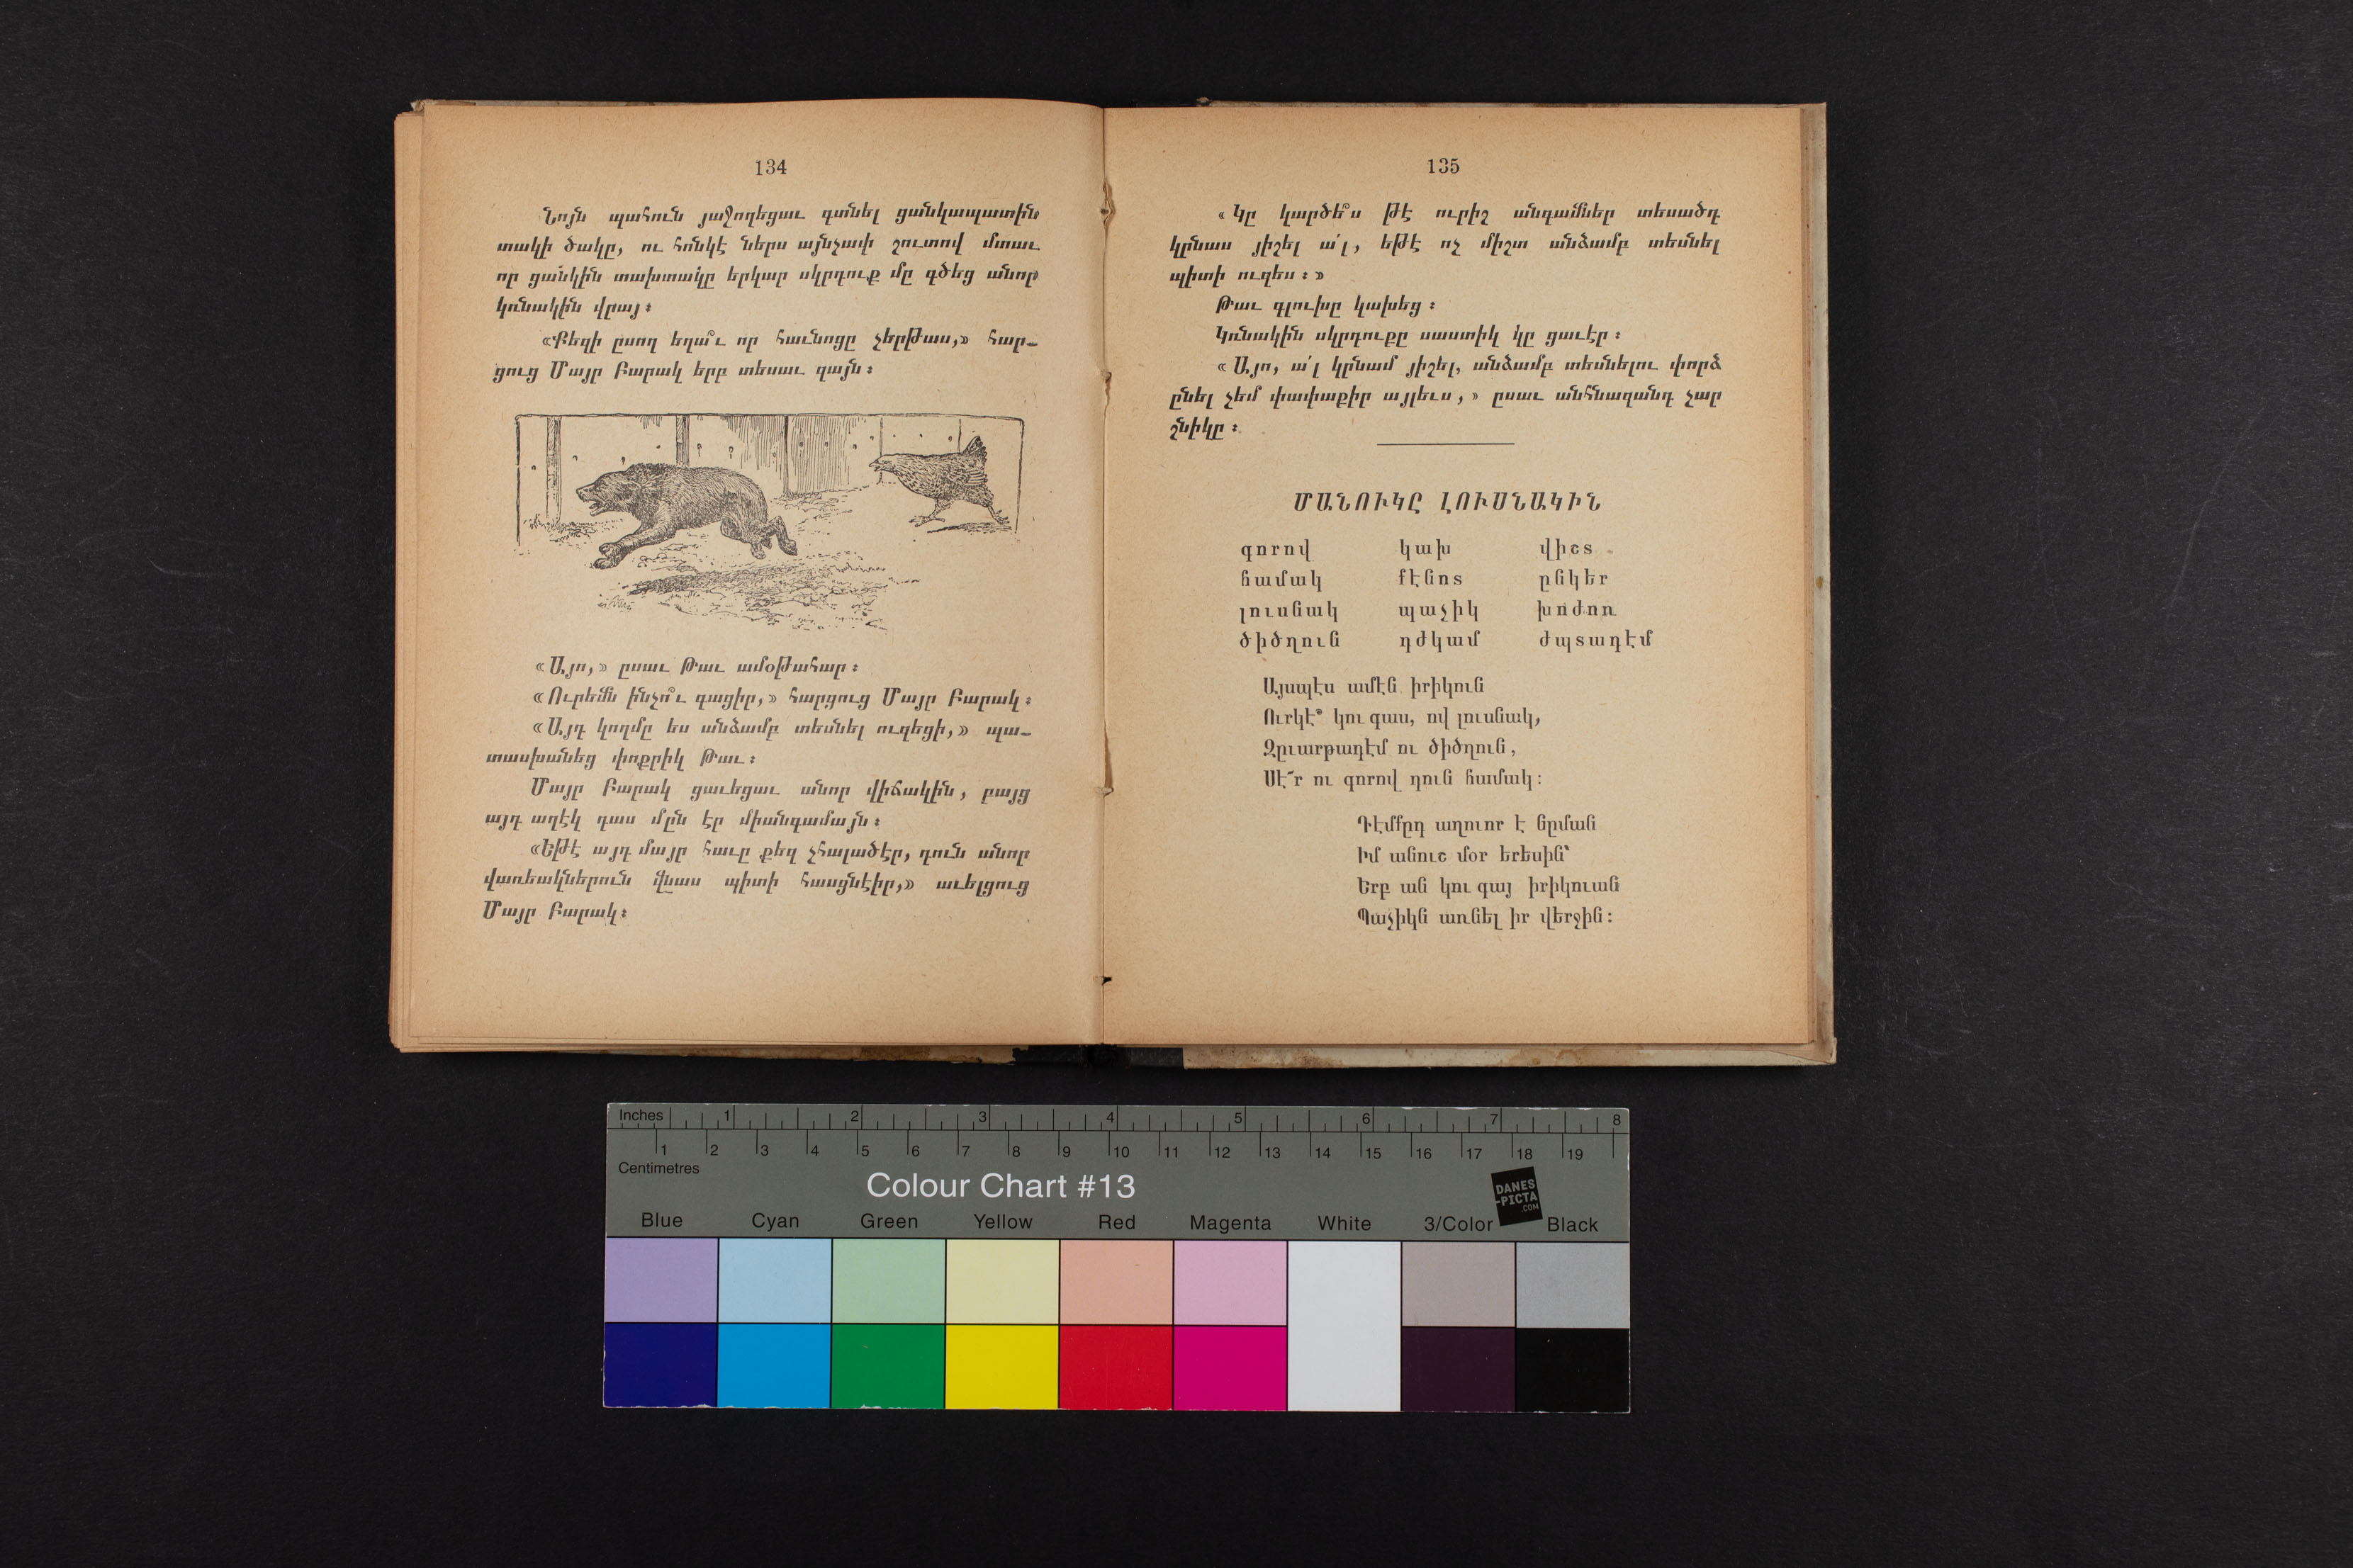 134
Նոյն պահուն յաջողեցաւ գտնել ցանկապատին
տակի ծակը, ու հոնկէ ներս այնչափ շուտով մտաւ
որ ցանկին տախտակը երկար սկրդուք մը գծեց անոր
կռնակին վրայ։
«Քեզի ըսող եղա՞ւ որ հաւնոցը չերթաս,» հար-
ցուց Մայր Բարակ երբ տեսաւ զայն։
«Այո,» ըսաւ Թաւ ամօթահար։
«Ուրեմն ինչո՞ւ գացիր,» հարցուց Մայր Բարակ։
«Այդ կողմը ես անձամբ տեսնել ուզեցի,» պա-
տասխանեց փոքրիկ Թաւ։
Մայր Բարակ ցաւեցաւ անոր վիճակին, բայց
այդ աղէկ դաս մըն էր միանգամայն։
«Եթէ այդ մայր հաւը քեզ չհալածէր, դուն անոր
վառեակներուն վնաս պիտի հասցնէիր,» աւելցուց
Մայր Բարակ։
135
«Կը կարծե՞ս թէ ուրիշ անգամներ տեսածդ
կրնաս յիշել ա՛լ, եթէ ոչ միշտ անձամբ տեսնել
պիտի ուզես։»
Թաւ գլուխը կախեց։
Կռնակին սկրդուքը սաստիկ կը ցաւէր։
«Այո, ա՛լ կրնամ յիշել, անձամբ տեսնելու փորձ
ընել չեմ փափաքիր այլեւս,» ըսաւ անհնազանդ չար
շնիկը։
ՄԱՆՈՒԿԸ ԼՈՒՍՆԱԿԻՆ
գորով կախ վիշտ
համակ քէնոտ ընկեր
լուսնակ պաչիկ խոժոռ
ծիծղուն դժկամ ժպտադէմ
Այսպէս ամէն իրիկուն
Ուրկէ՞ կու գաս, ով լուսնակ,
Զըւարթադէմ ու ծիծղուն,
Սէ՜ր ու գորով դուն համակ։
Դէմքըդ աղուոր է նըման
Իմ անուշ մօր երեսին՝
Երբ ան կու գայ իրիկուան
Պաչիկն առնել իր վերջին։
Inches 1 2 3 4 5 6 7 8
1 2 3 4 5 6 7 8 9 10 11 12 13 14 15 16 17 18 19
Centimetres
Colour Chart #13
DANES
-PICTA
.COM
Blue Cyan Green Yellow Red Magenta White 3/Color Black